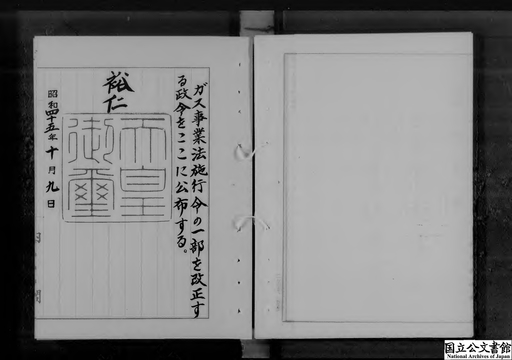 ガス事業法施行令の一部を改正す
る政令をここに公布する。
裕仁
天皇
御璽
昭和四十五年十月九日
国立公文書館
National Archives of Japan